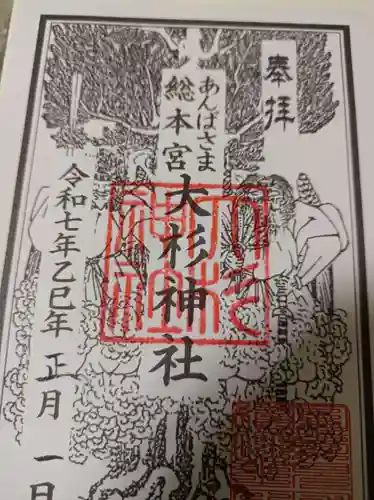 奉拝
あんばさま
総本宮
大杉神社
令和七年乙巳年 正月 一日